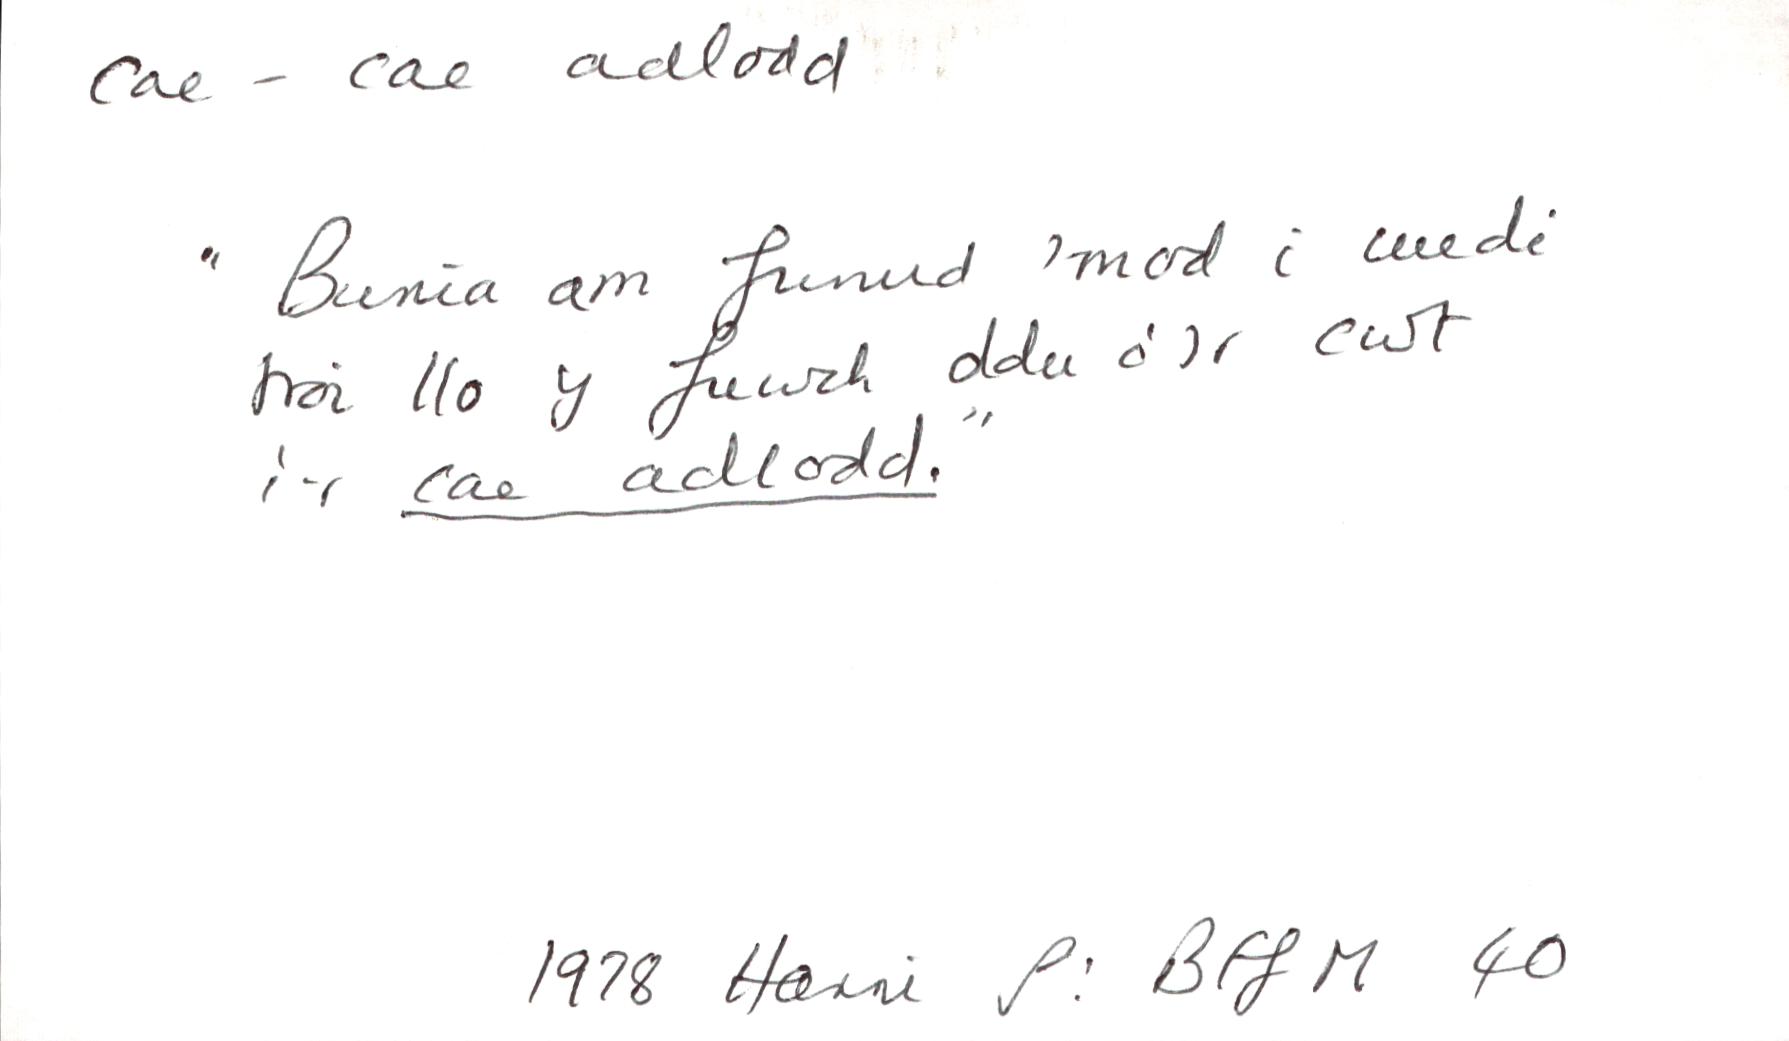 cae - cae adlodd
"Bunia am funud 'mod i wedi
troi llo y fuwch ddu o'r cwt
i'r cae adlodd."
1978 Harri P: BFfM 40